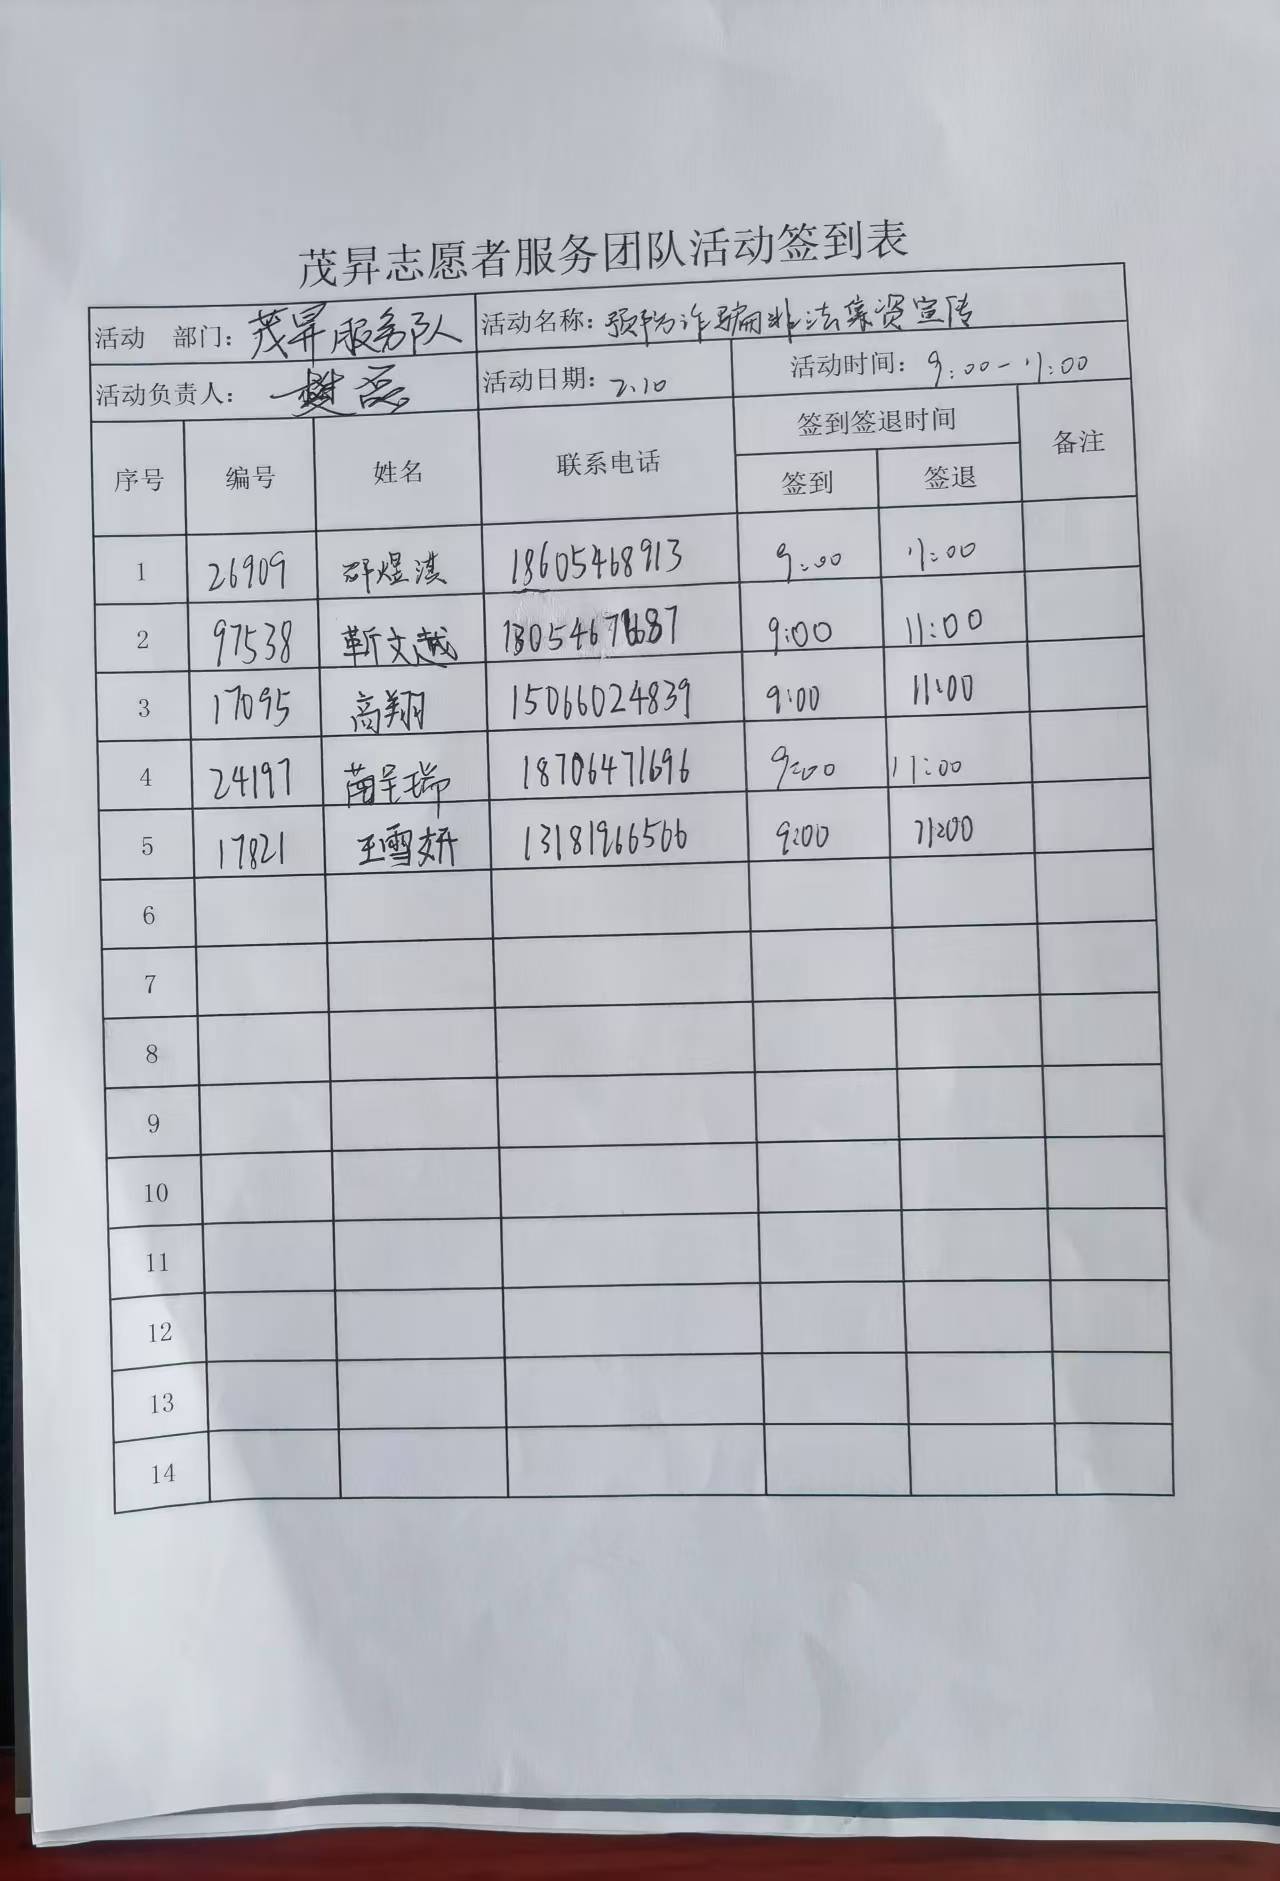 茂昇志愿者服务团队活动签到表
活动 部门：茂昇服务队 活动名称：预防诈骗非法集资宣传
活动负责人：樊磊 活动日期：2.10 活动时间：9:00-11:00
序号 编号 姓名 联系电话 签到签退时间 备注
签到 签退
1 26909 煜淇 18605468913 9:00 11:00
2 97538 靳文越 9:00 11:00
3 17095 高翔 15066024839 9:00 11:00
4 24197 呈瑞 18706471696 9:00 11:00
5 17821 王雪妍 13181966566 9:00 11:00
6
7
8
9
10
11
12
13
14